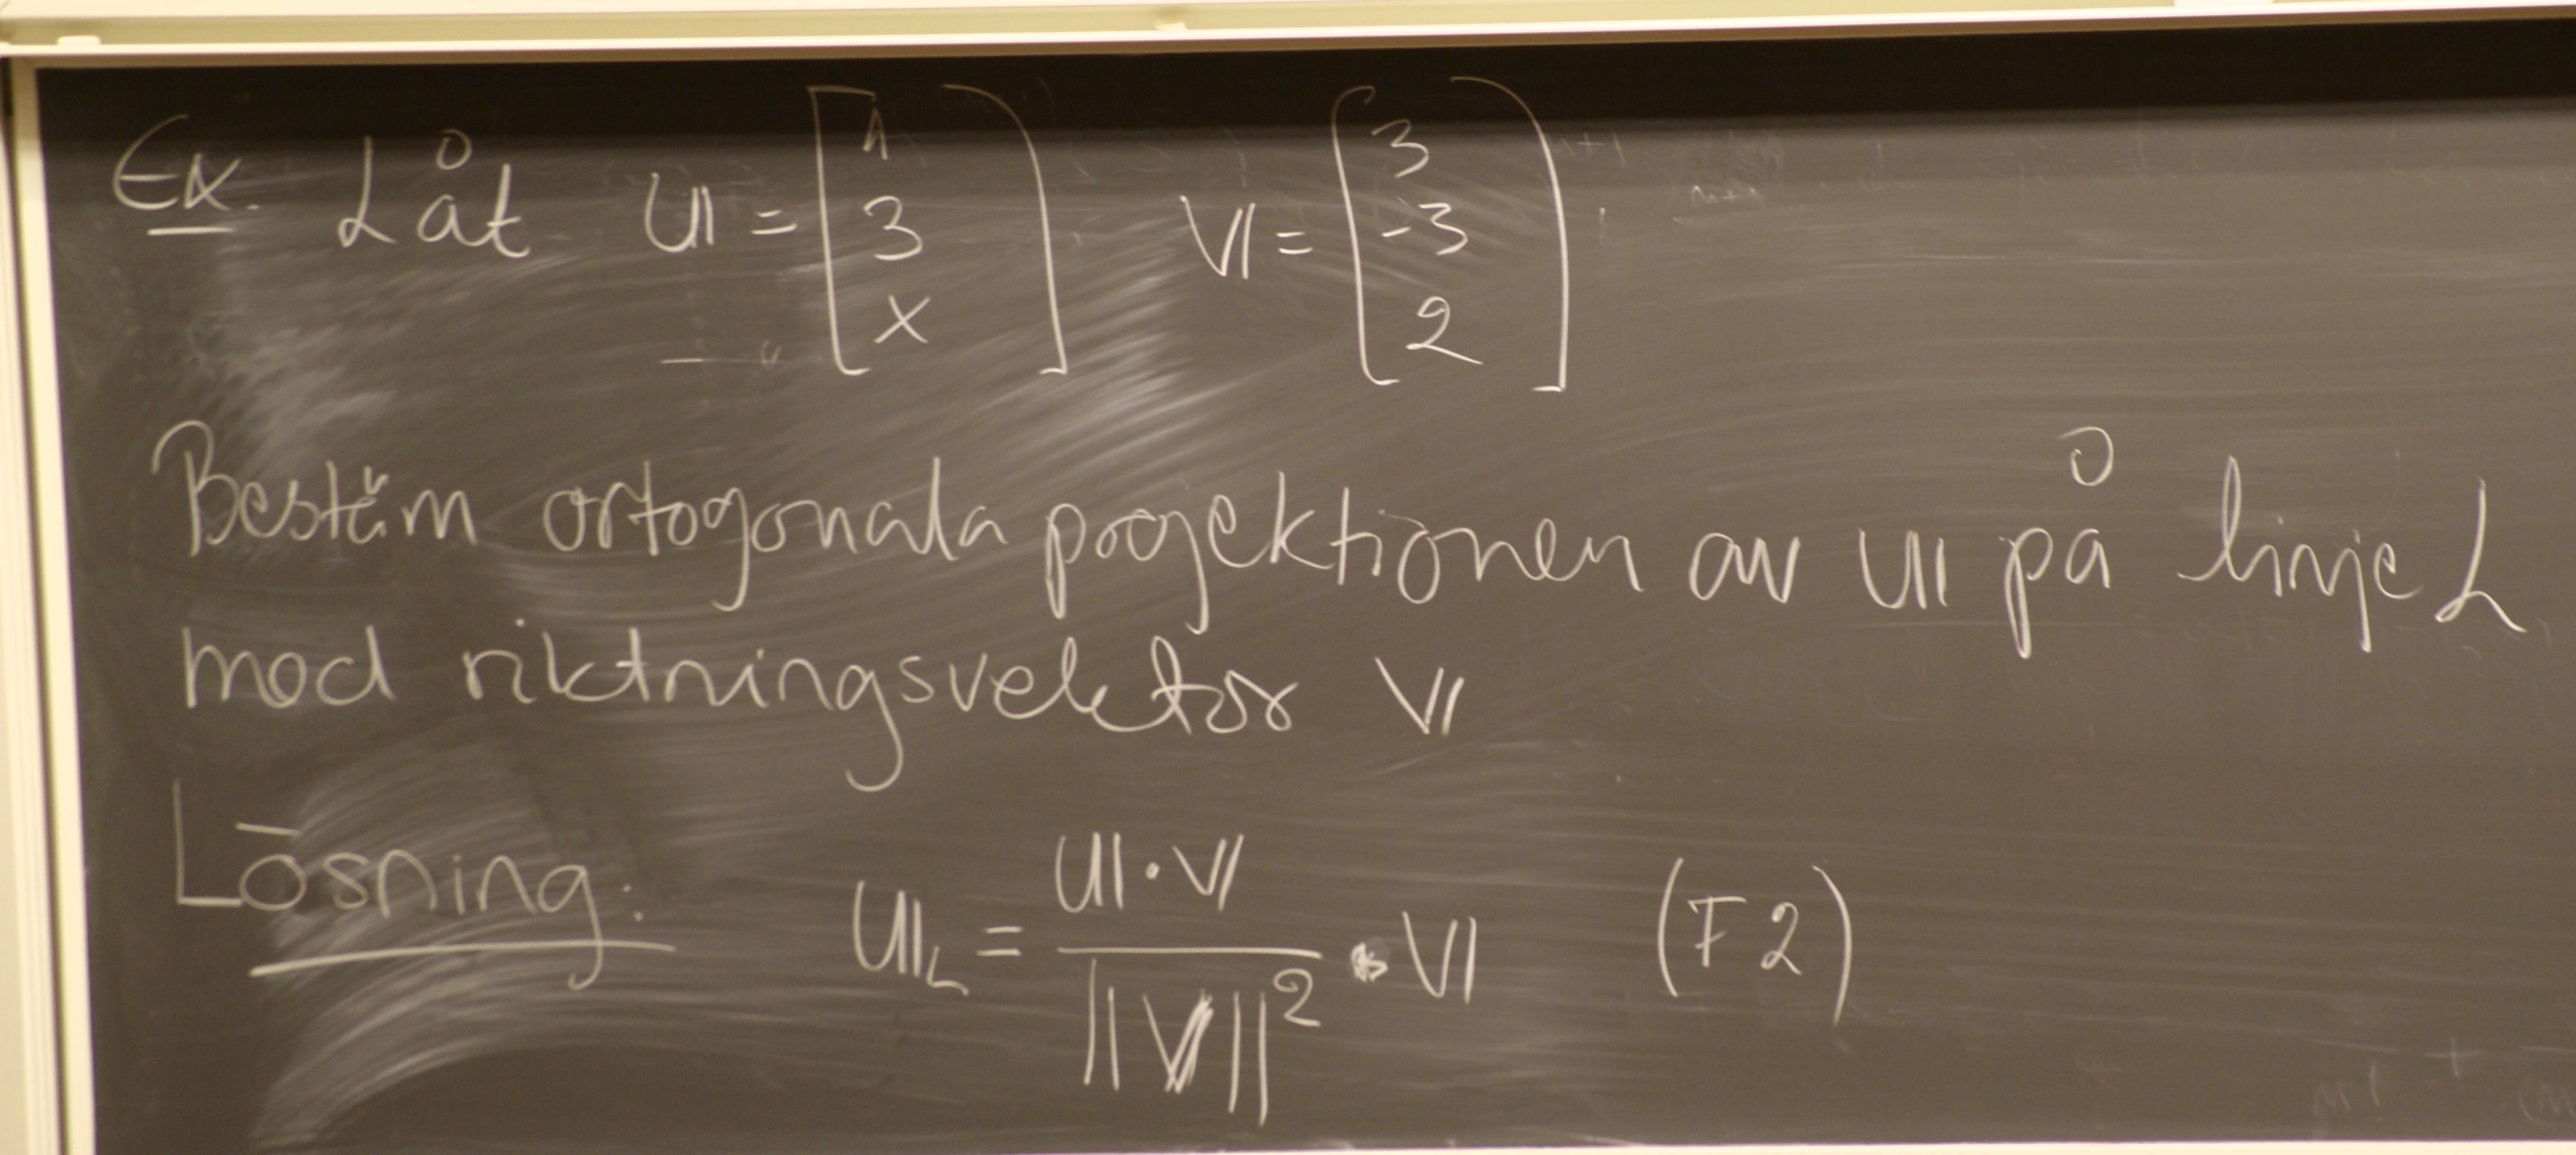 Ex. Låt u = [1 3 x] v = [3 -3 2].
Bestäm ortogonala projektionen av u på linje L
med riktningsvektor v
Lösning: u_L = (u · v) / ||v||² · v (F2)